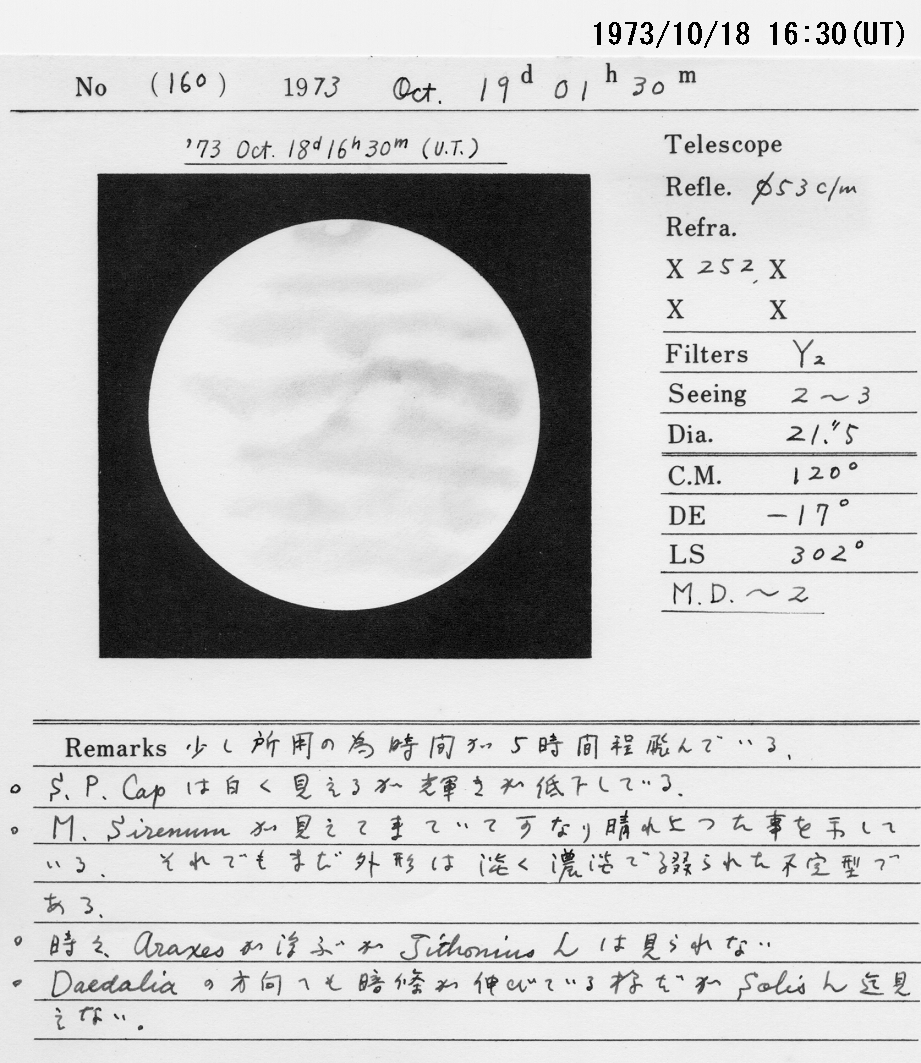 1973/10/18 16:30(UT)
No (160) 1973 Oct. 19d 01h 30m
'73 Oct. 18d 16h 30m (U.T.)
Telescope
Refle. ø53 c/m
Refra.
X 252 X
X X
Filters Y2
Seeing 2~3
Dia. 21."5
C.M. 120°
DE -17°
LS 302°
M.D.~2
Remarks 少し所用の為時間が5時間程飛んでいる.
○ S.P. Cap は白く見えるが輝きが低下している.
○ M. Sirenum が見えてきていて可なり晴れ上つた事を示して
いる. それでもまだ外形は淡く濃淡で綴られた不定型で
ある.
○ 時々、Araxes が浮ぶが Tithonius L は見られない
○ Daedalia の方向へも暗條が伸びている様だが Solis L 迄見
えない.